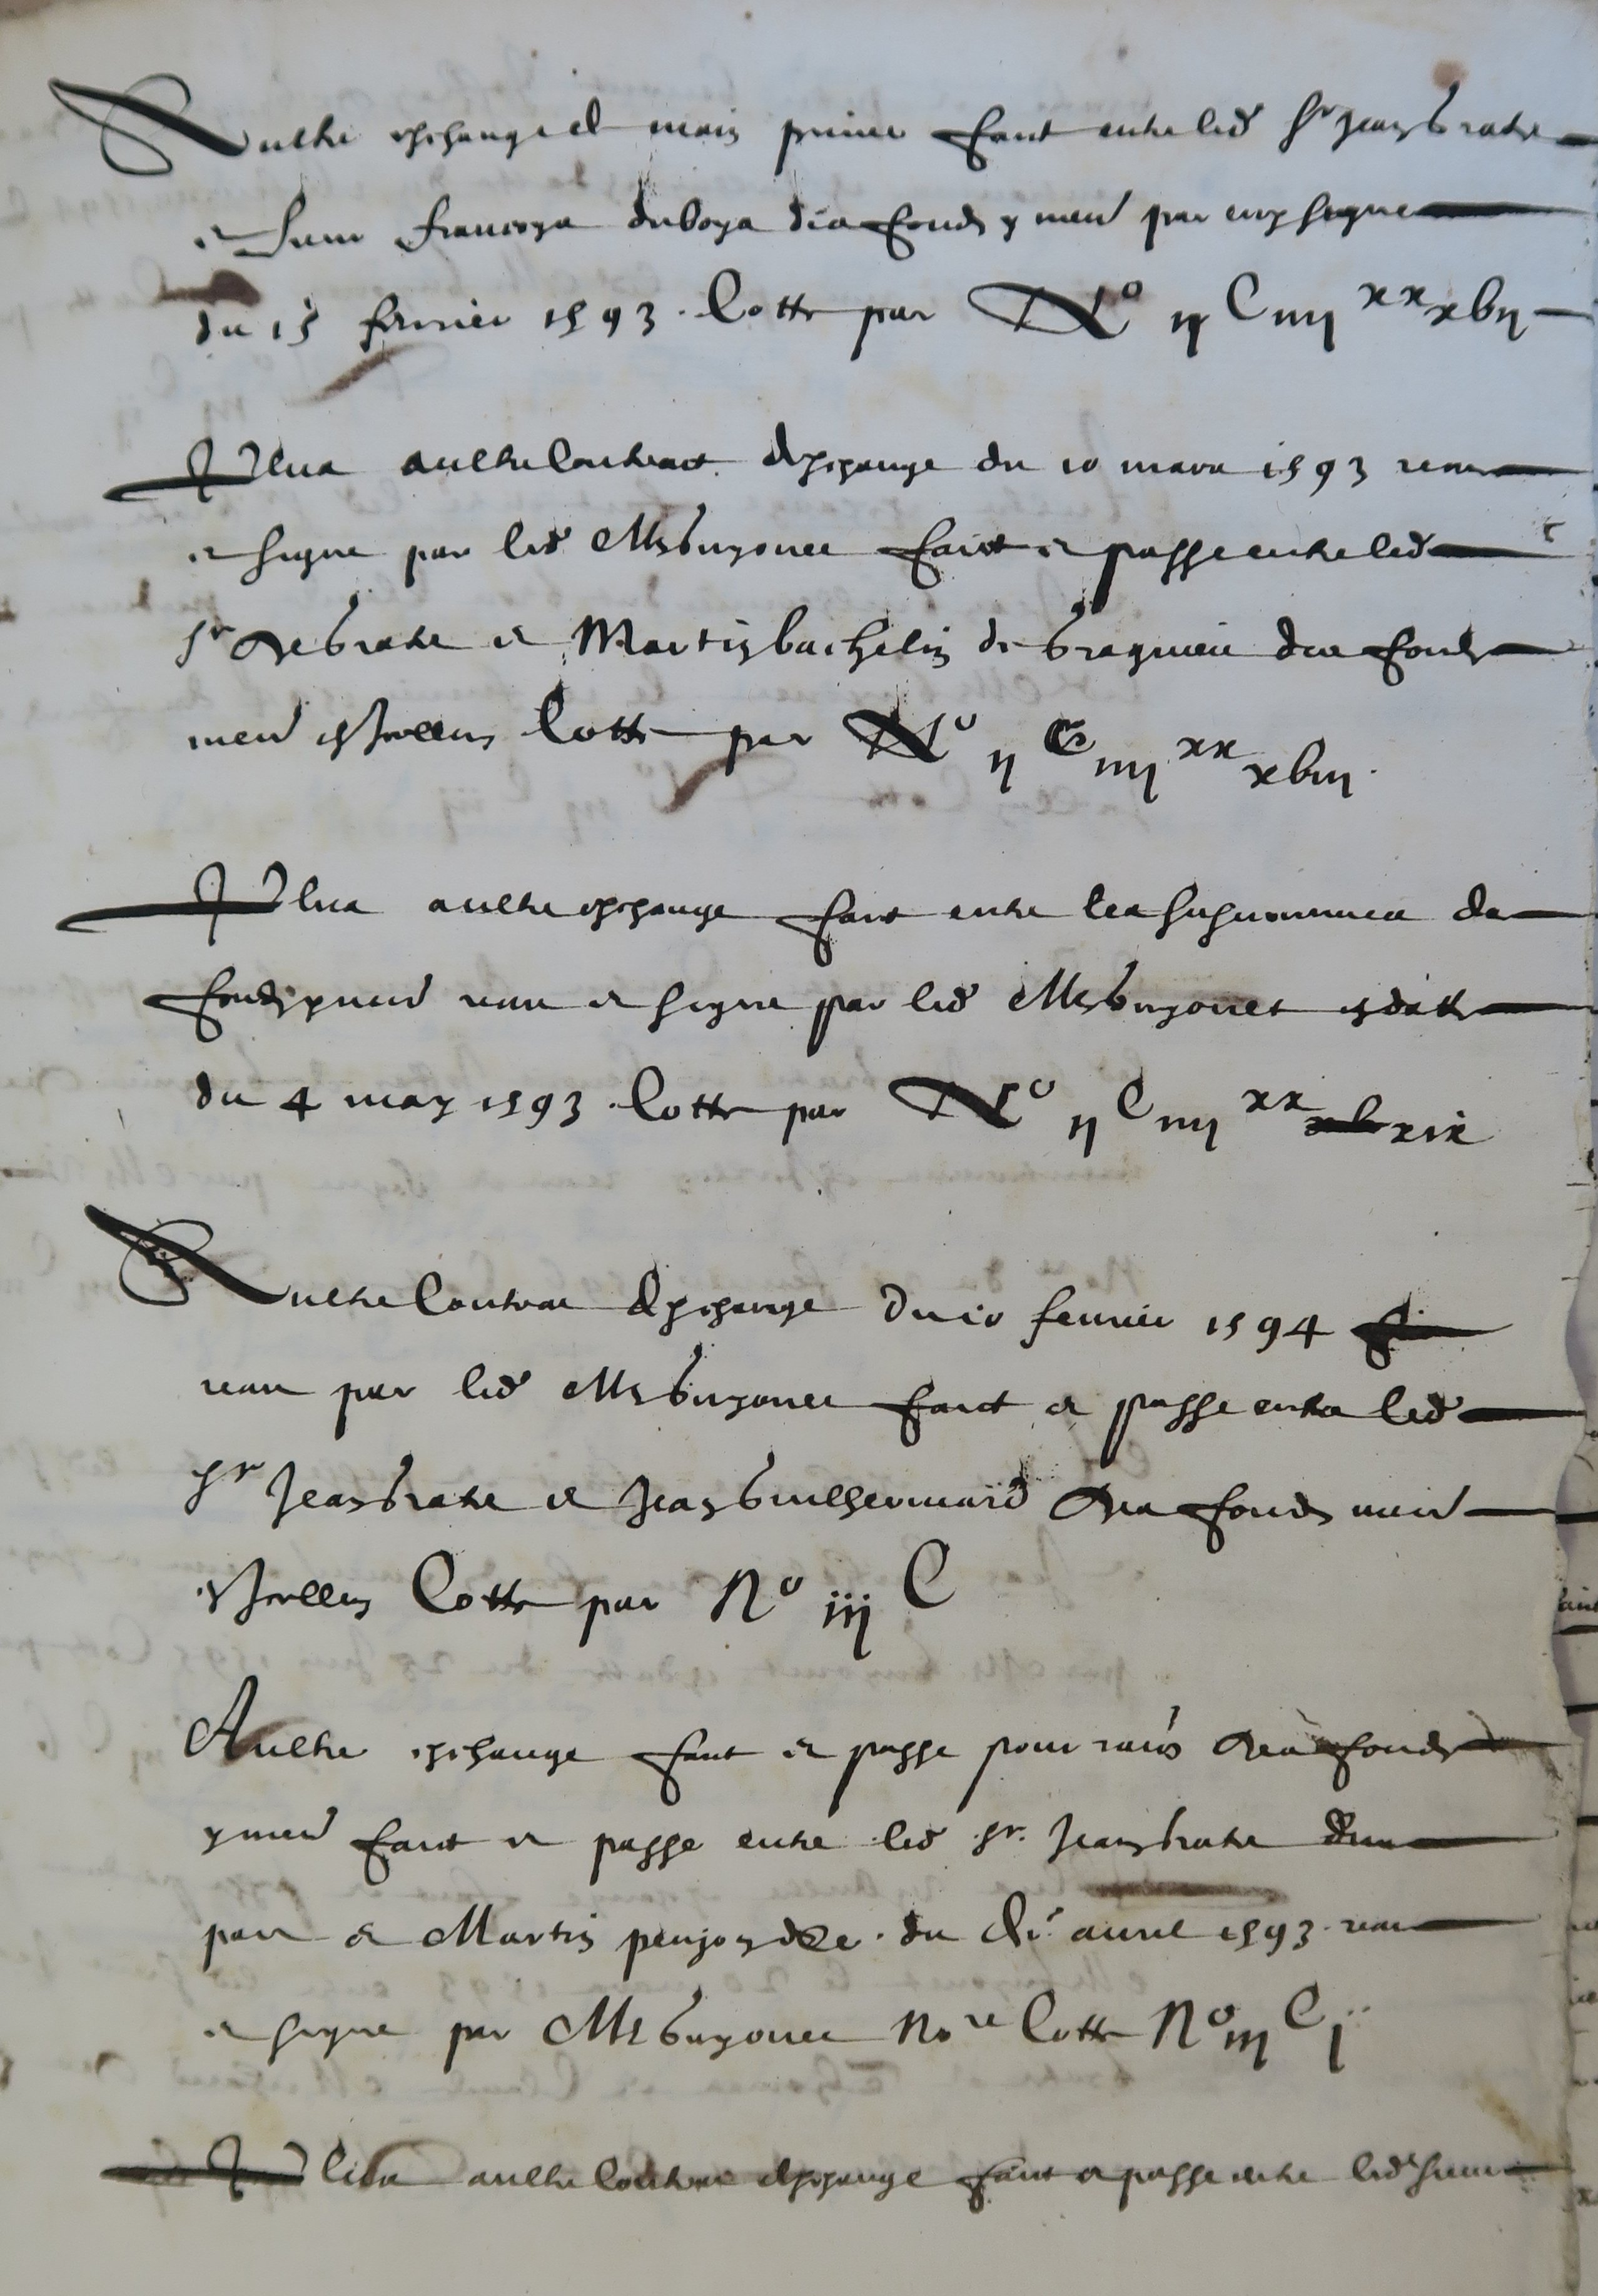 Aultre eschange et main prime faict entre led Sr Jean brace
et sieur francoys duboys des fonds y men par luy signe
du 15 febvrier 1593 . Cotte par No ij C iiij xx xvij
Plus aultre Contract deschange du 10 mars 1593 receu
et signe par led Me bugonet faict et passe entre led
Sr de brace et Martin bachelin de bragnieu des fonds
men en Icelluy Cotte par No ij C iiij xx xviij .
Plus aultre eschange faict entre les susnommes de
fonds y men receu et signe par led Me bugonet en datte
du 4 may 1593 . Cotte par No ij C iiij xx xix
Aultre Contract deschange du 10 febvrier 1594
receu par led Me bugonet faict et passe entre led
Sr Jean brace et Jean guilhermard des fonds men
en Icelluy Cotte par No iij C
Aultre eschange faict et passe pour rais des fonds
y men faict et passe entre led Sr. Jean brace dune
part et Martin penjon . du avril 1593 . receu
et signe par Me bugonet Nore Cotte No iij C j
Plus aultre Contract deschange faict et passe entre led sieur